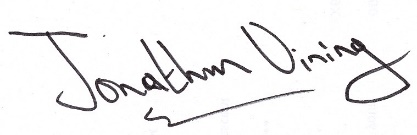 Jonathan Vining